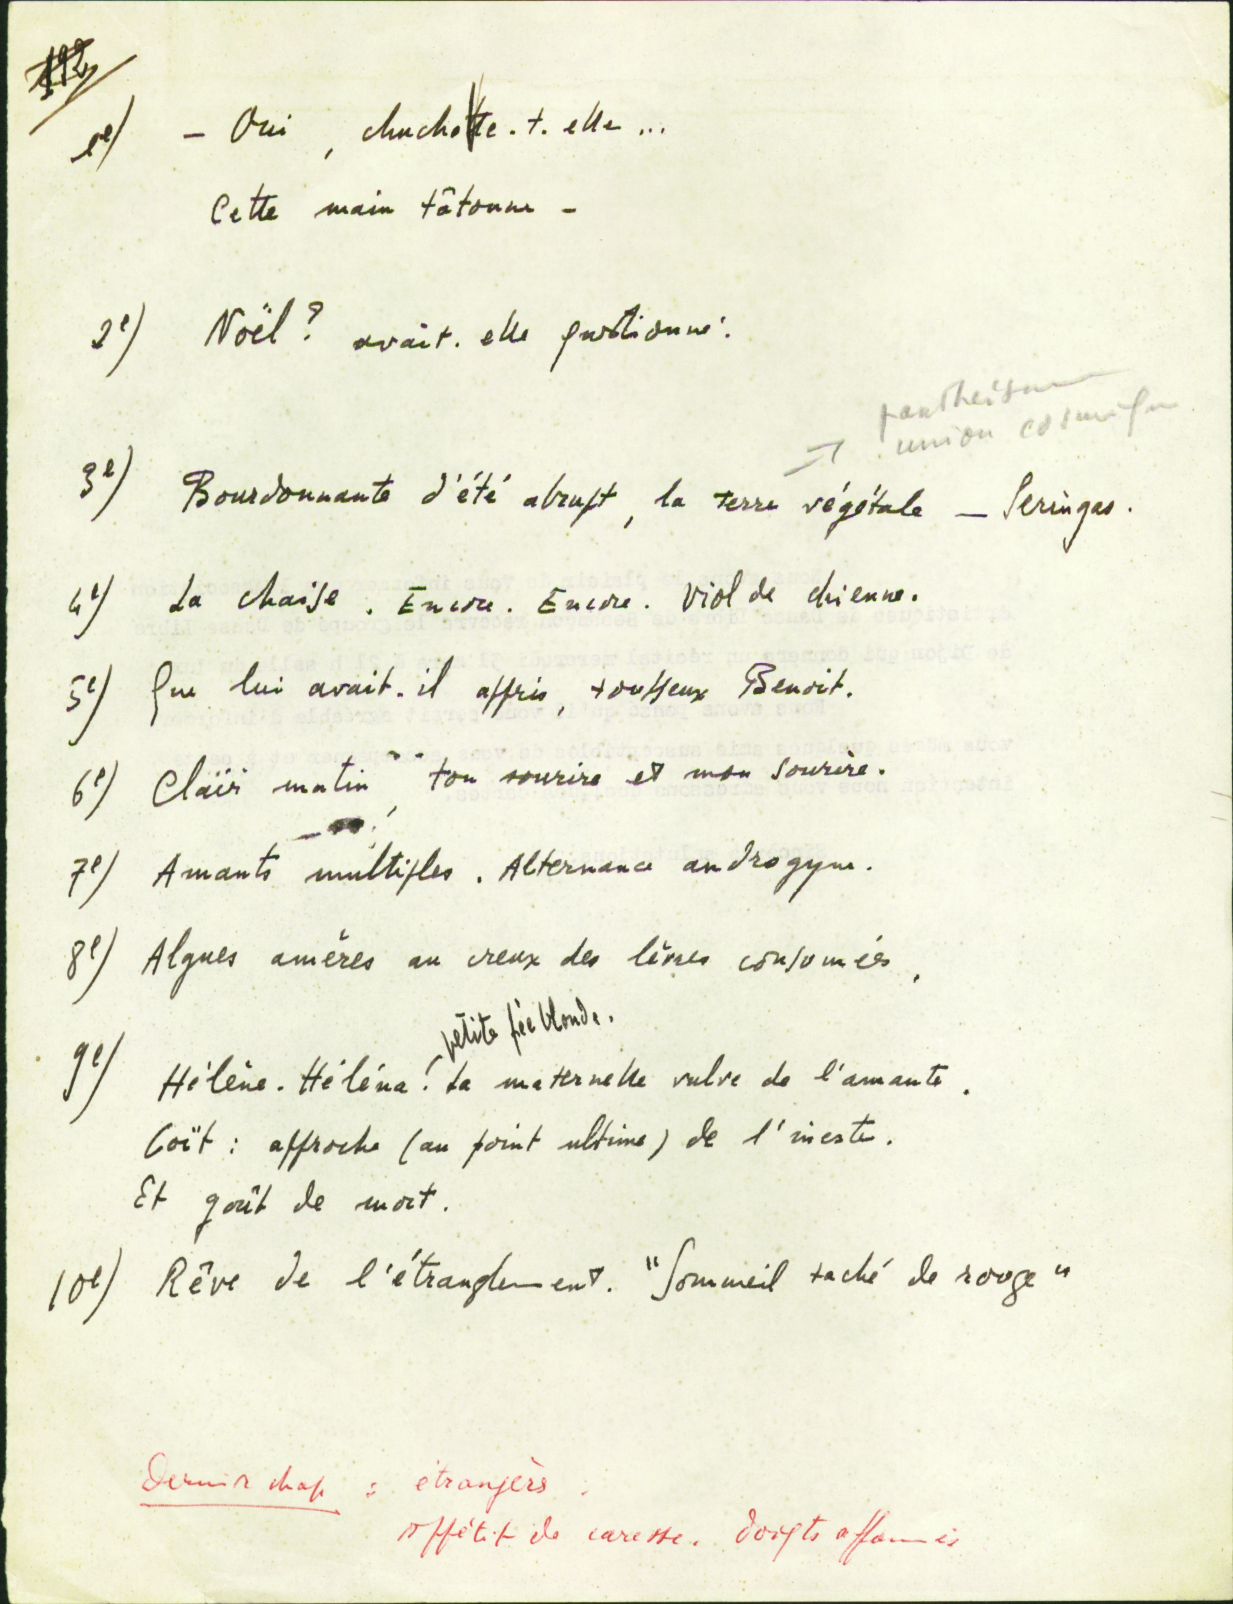 192
1e) – Oui, chuchote-t-elle ...
Cette main tâtonne –
2e) Noël? avait-elle questionné.
panthéisme
→ union cosmique
3e) Bourdonnante d'été abrupt, la terre végétale – Seringas.
4e) La chaise. Encore. Encore. Viol de chienne.
5e) Que lui avait-il appris, touffeux Benoit.
6e) Clair matin, ton sourire et mon sourire.
7e) Amants multiples. Alternance androgyne.
8e) Algues amères au creux des lèvres consumées,
petite fée blonde.
9e) Hélène. Héléna! La maternelle vulve de l'amante.
Coït : approche (au point ultime) de l'inceste.
Et goût de mort.
10e) Rêve de l'étranglement. "Sommeil taché de rouge"
Dernier chap : étrangers.
appétit de caresse. Doigts affamés